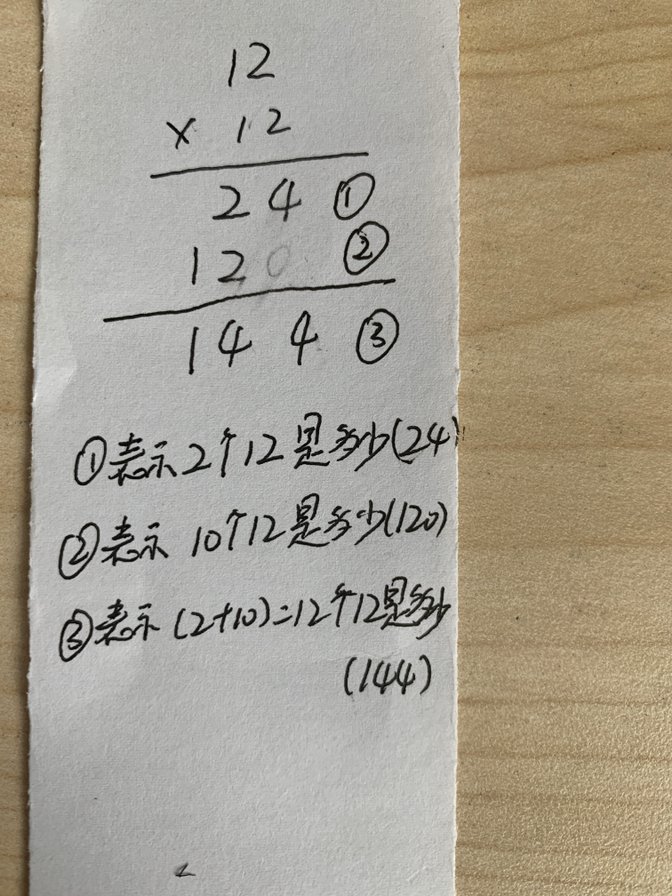 12
× 12
24 ①
120 ②
144 ③
①表示2个12是多少(24)
②表示 10个12是多少(120)
③表示(2+10)=12个12是多少
(144)